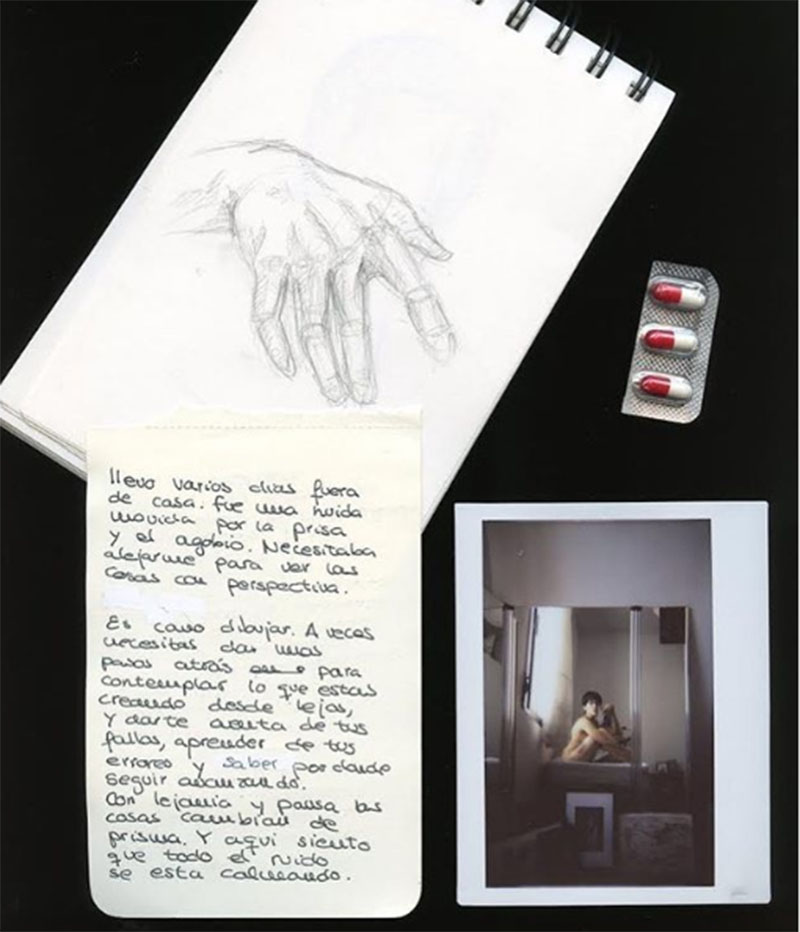 llevo varios dias fuera
de casa. fue una huida
movida por la prisa
y el agobio. Necesitaba
alejarme para ver las
cosas con perspectiva.
Es como dibujar. A veces
necesitas dar unos
pasos atrás para
contemplar lo que estas
creando desde lejos,
y darte cuenta de tus
fallos, aprender de tus
errores y saber por donde
seguir avanzando.
Con lejania y pausa las
cosas cambian de
prisma. Y aqui siento
que todo el ruido
se esta calmando.